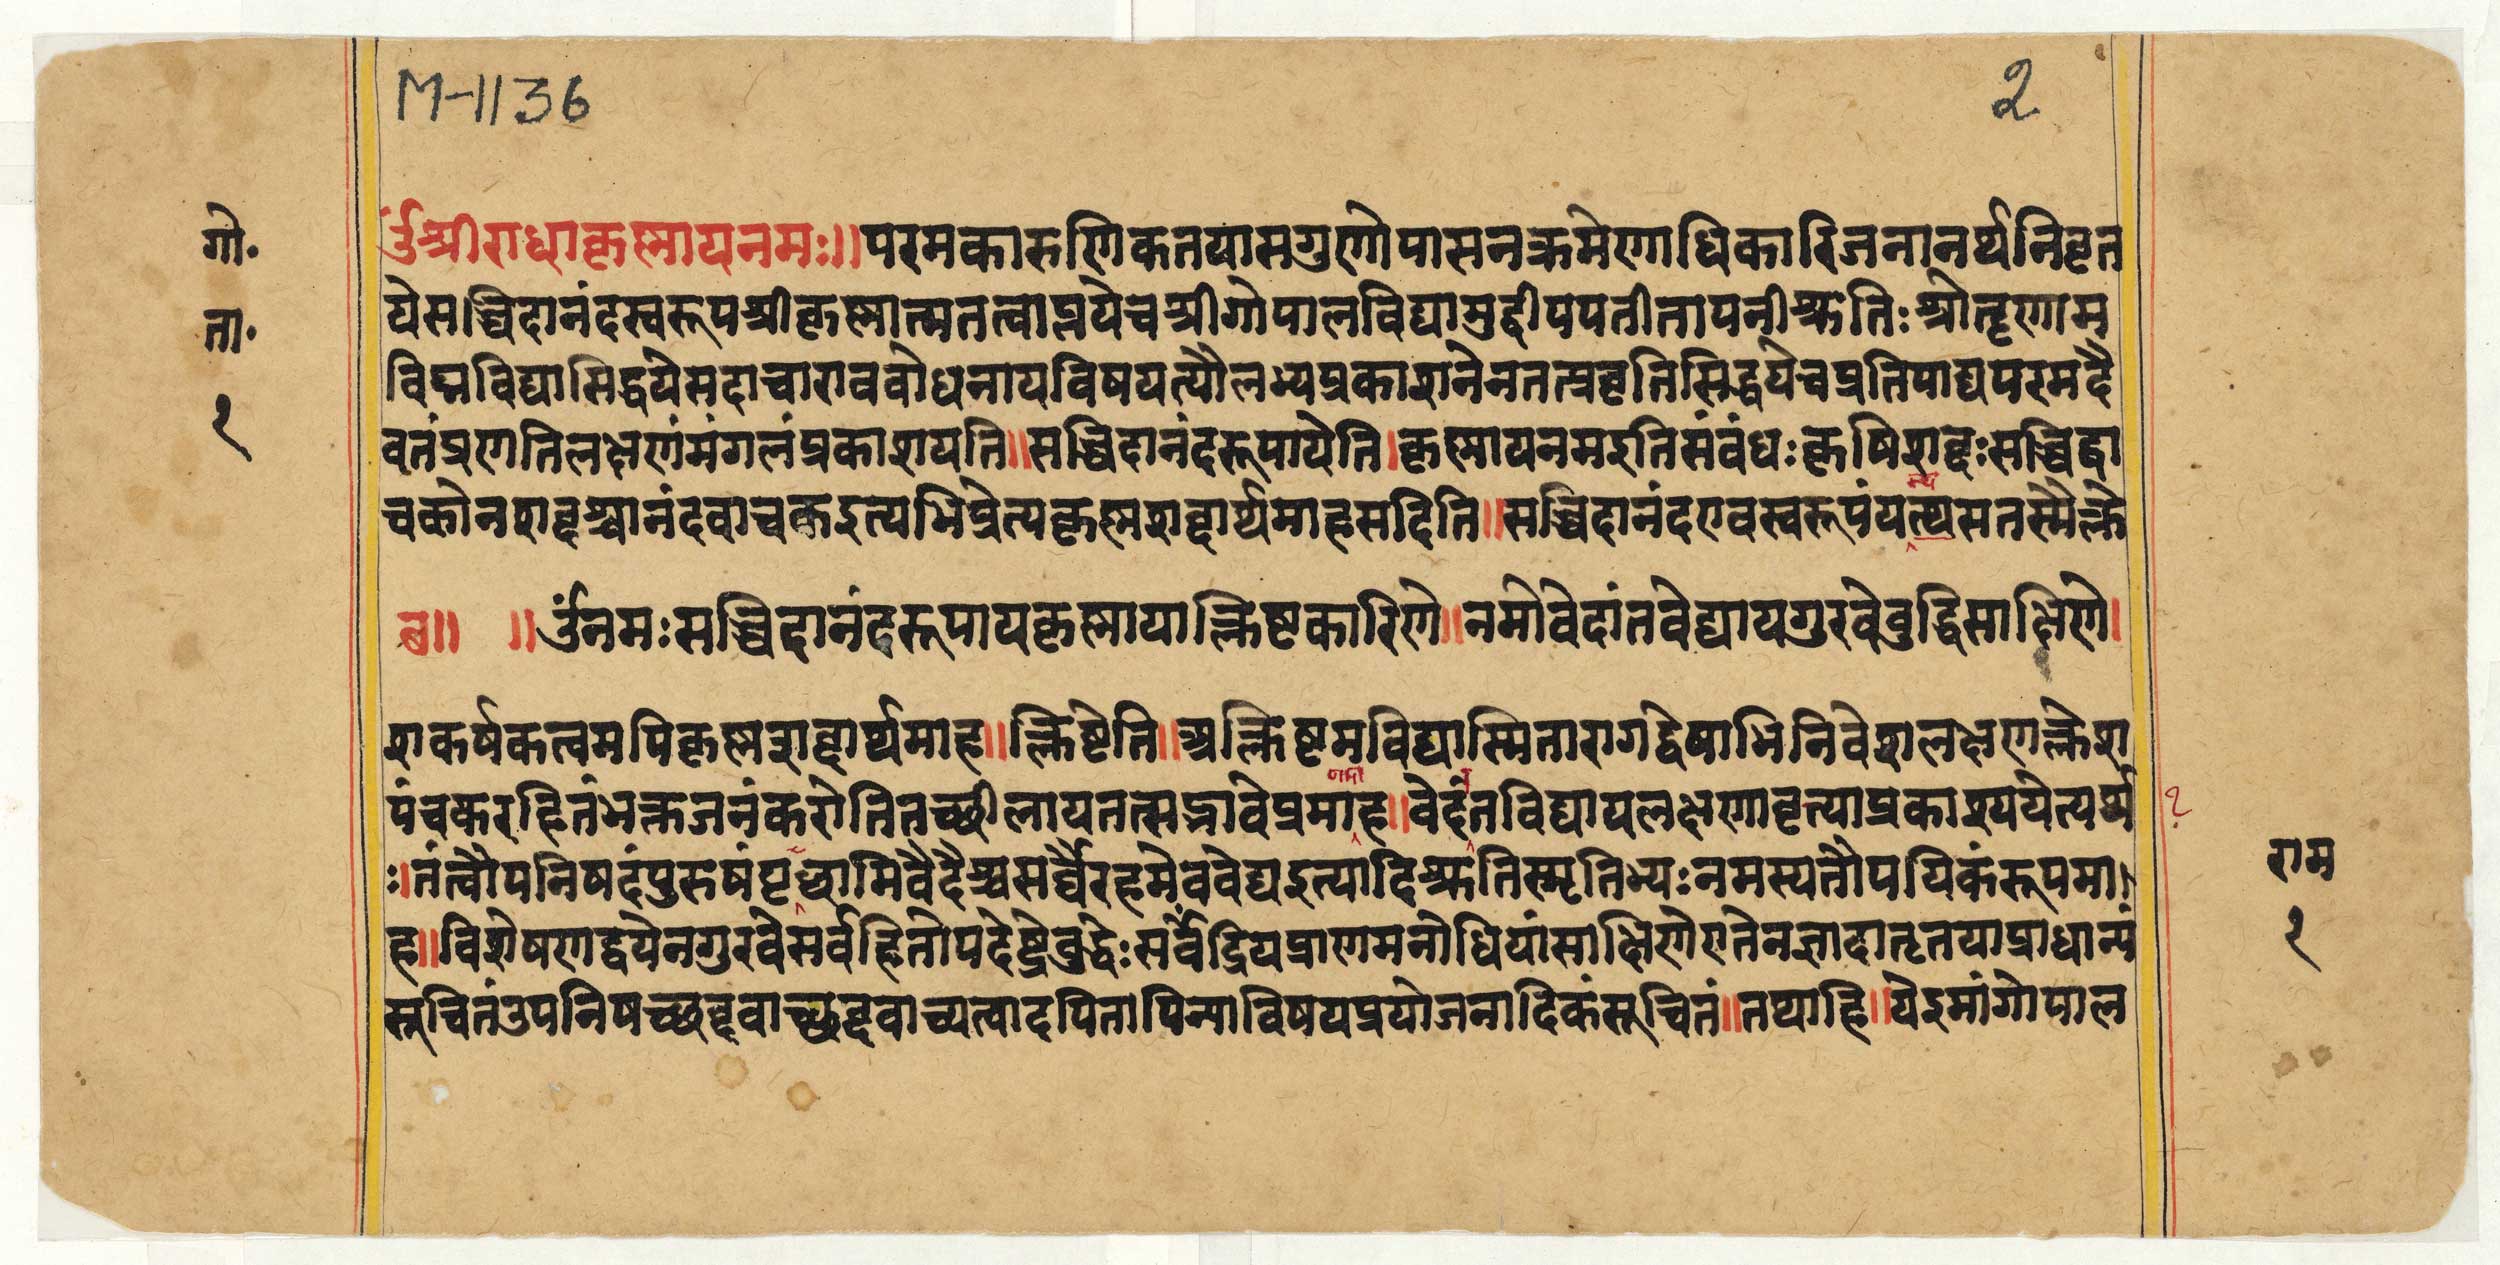 M-1136
२
गो॰
ता॰
१
ॐश्रीराधाकृष्णायनमः॥परमकारुणिकतयासगुणोपासनक्रमेणाधिकारिजनानर्थनिवृत
येसच्चिदानंदस्वरूपश्रीकृष्णात्मतत्वाप्तयेचश्रीगोपालविद्यामुद्दीपपतीतापनीश्रुतिः श्रोतॄणाम
विघ्नविद्यासिद्धयेसदाचारावबोधनायविषयत्यौलभ्यप्रकाशनेनतत्प्रवृतिसिद्धयेचप्रतिपाद्यपरमदै
वतंप्रणतिलक्षणंमंगलंप्रकाशयति॥सच्चिदानंदरूपायेति।कृष्णायनमइतिसंबंधःकृषिशब्दःसच्चिद्वा
चकोनशब्दश्चानंदवाचकइत्यभिप्रेत्यकृष्णशब्दार्थमाहसदिति॥सच्चिदानंदएवस्वरूपंयत्स्यसतस्मैक्ले
ब॥ ॥ॐनमःसच्चिदानंदरूपायकृष्णायाक्लिष्टकारिणे॥नमोवेदांतवेद्यायगुरवेबुद्धिसाक्षिणे।
शकर्षकत्वमपिकृष्णशब्दार्थमाह॥क्लिष्टेति॥अक्लिष्टमविद्यास्मितारागद्वेषाभिनिवेशलक्षणक्लेश
पंचकरहितंभक्तजनंकरोतितच्छीलायतत्सद्भावेप्रमाह॥वेदंतविद्यायलक्षणावृत्याप्रकाश्ययेत्यर्थ
ः।तंत्वौपनिषदंपुरुषंपृछामिवैदैश्चसर्वैरहमेववेद्यइत्यादिश्रुतिस्मृतिभ्यःनमस्यतौपयिकंरूपमा
ह॥विशेषणद्वयेनगुरवेसर्वहितोपदेष्ट्रेबुद्धेःसर्वेंद्रियप्राणमनोधियांसाक्षिणेएतेनज्ञादातृतयाप्राधान्यं
सूचितंउपनिषच्छब्दवाच्छब्दवाच्यत्वादपितापिन्याविषयप्रयोजनादिकंसूचितं॥तथाहि॥येइमांगोपाल
राम
१